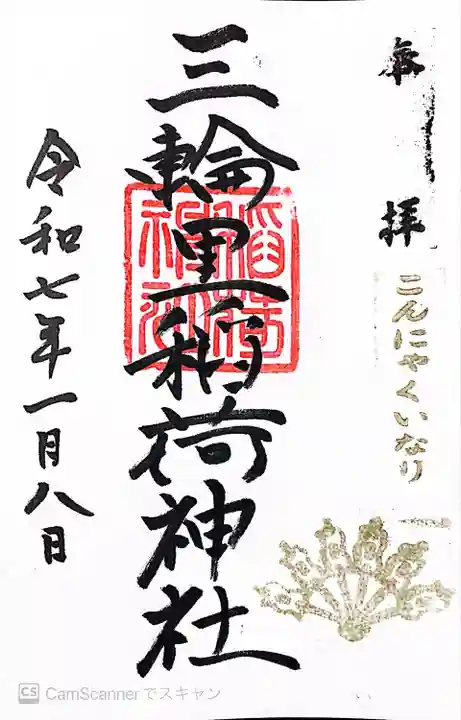 奉拝
こんにゃくいなり
三輪里稲荷神社
稲荷神社
令和七年一月八日
CS CamScannerでスキャン